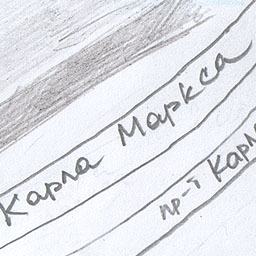 Карла Маркса
пр-т Карла